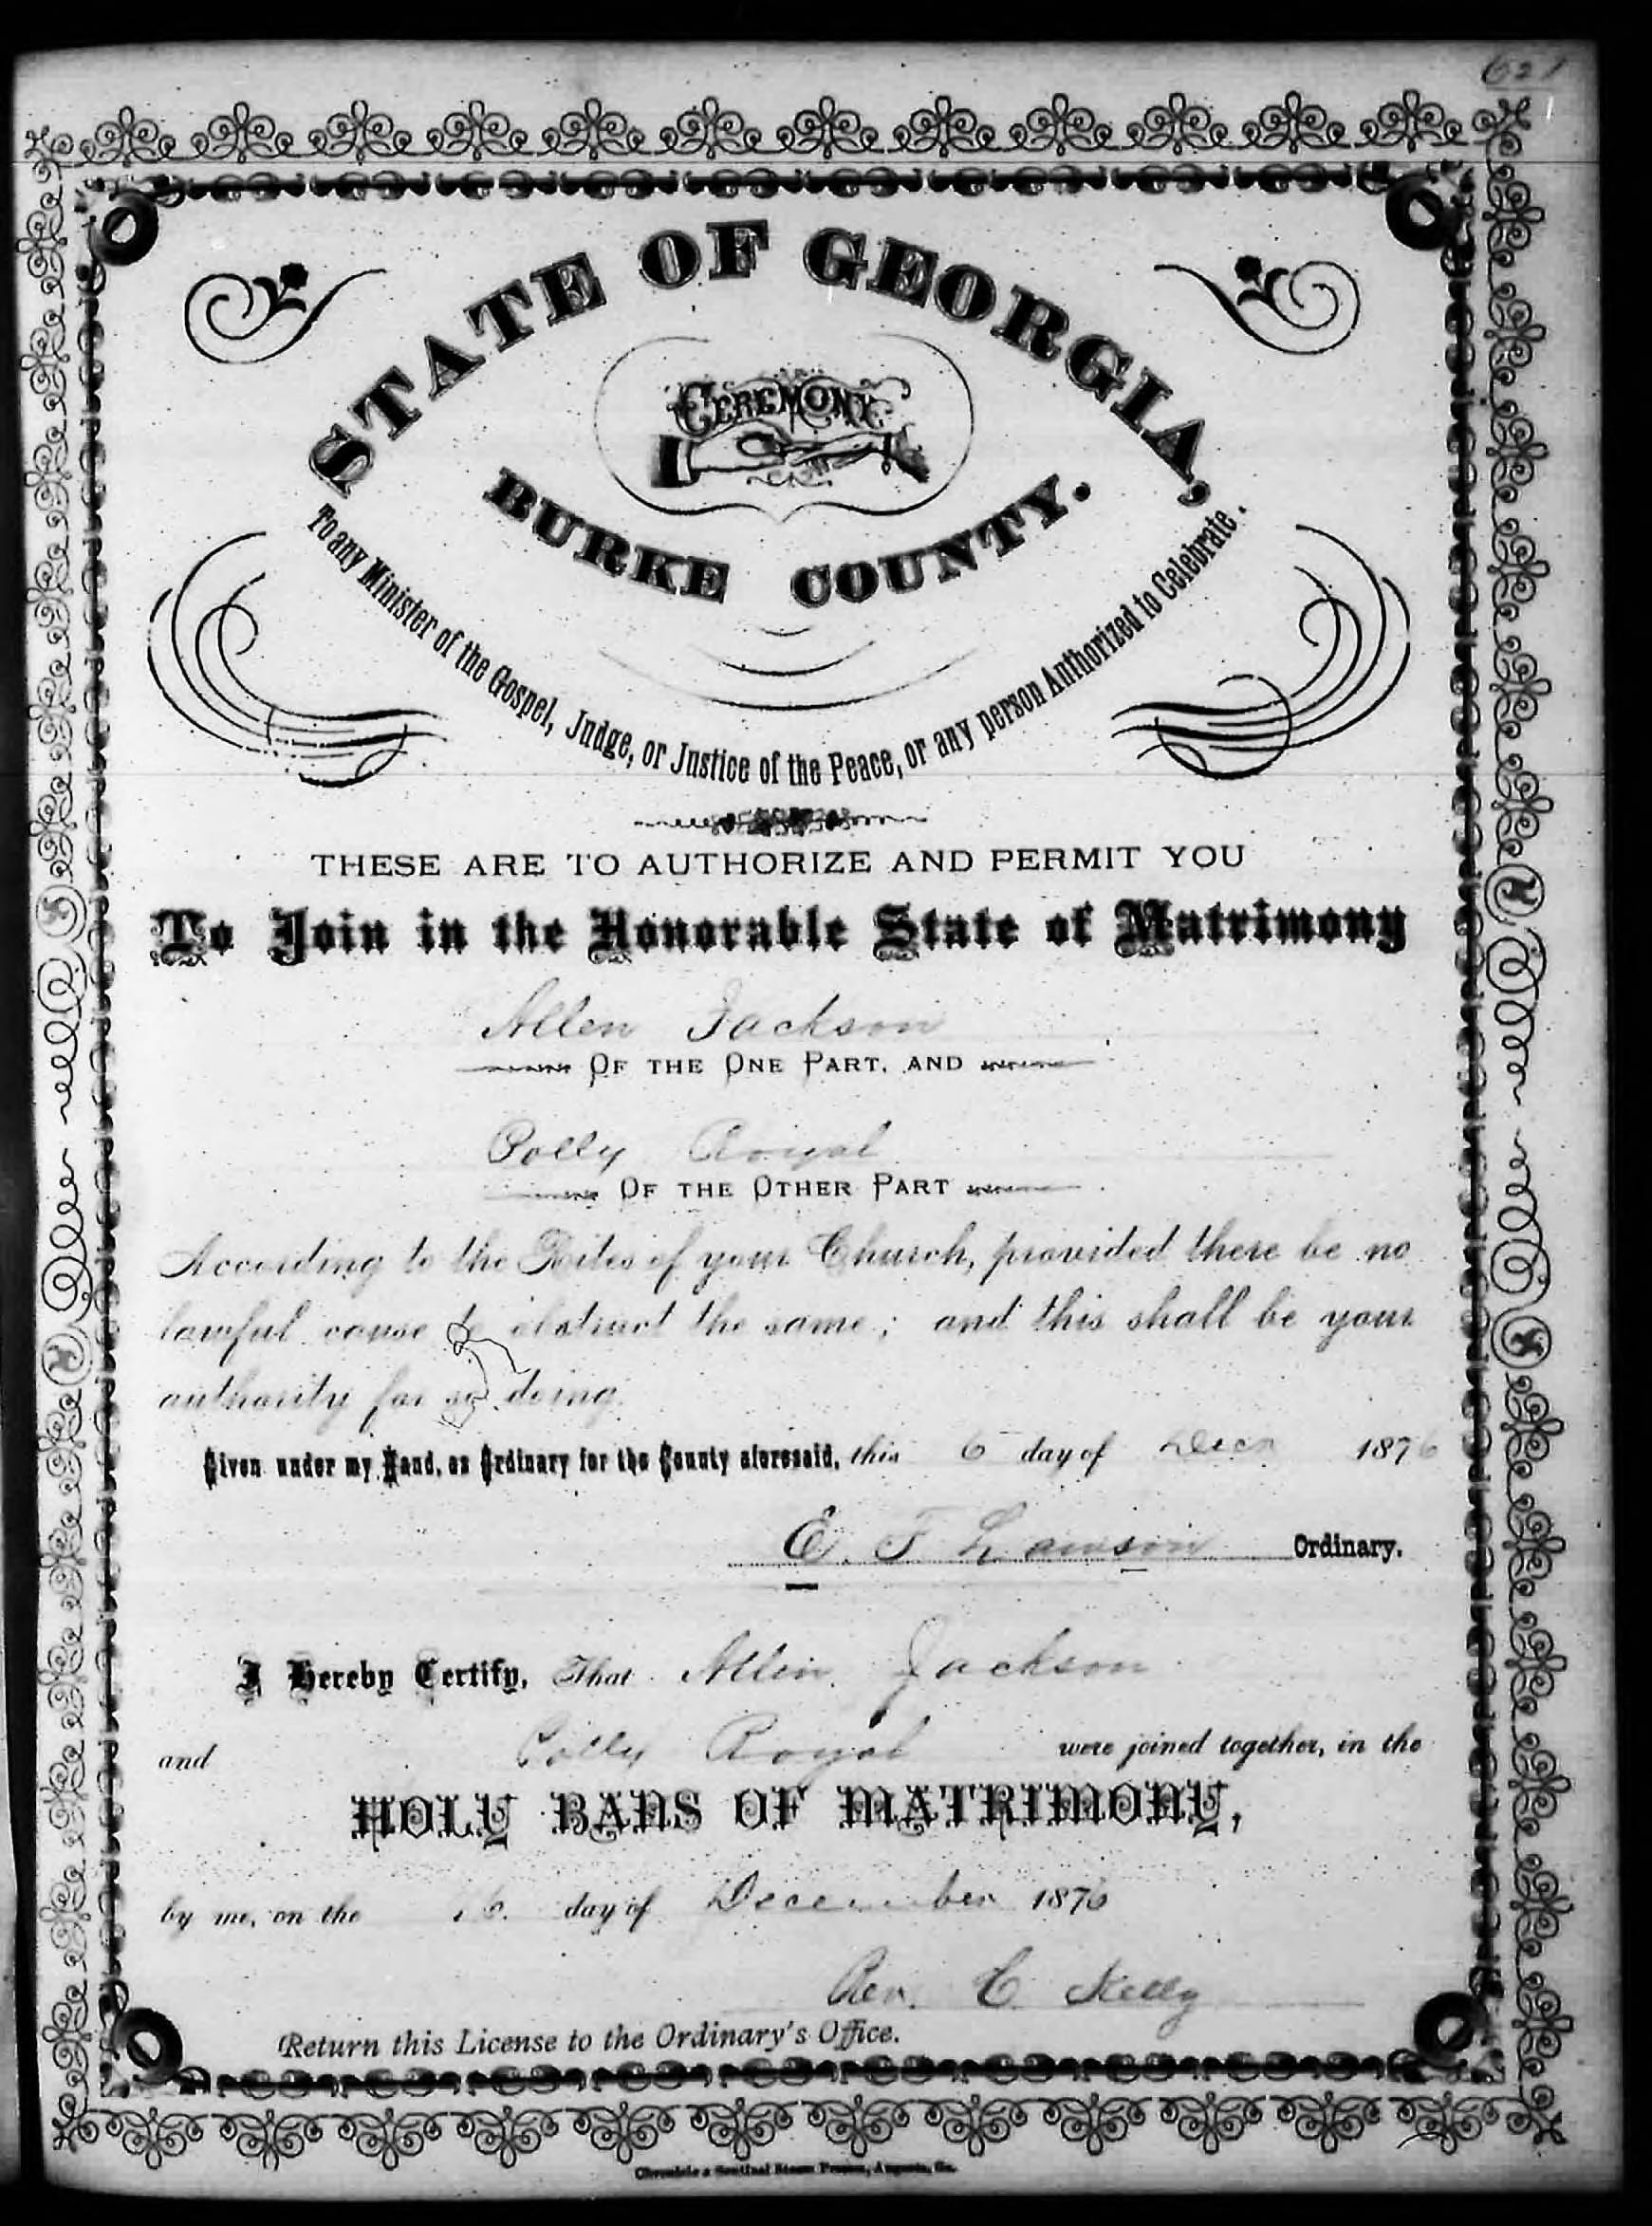 621
STATE OF GEORGIA,
CEREMONY
BURKE COUNTY.
To any Minister of the Gospel, Judge, or Justice of the Peace, or any person Authorized to Celebrate.
THESE ARE TO AUTHORIZE AND PERMIT YOU
To Join in the Honorable State of Matrimony
Allen Jackson
OF THE ONE PART, AND
Polly Royal
OF THE OTHER PART
According to the Rites of your Church, provided there be no
lawful cause to obstruct the same; and this shall be your
authority for so doing.
Given under my Hand, as Ordinary for the County aforesaid, this 6 day of Decr 1876
E. F Lawson Ordinary.
I Hereby Certify, That Allen Jackson
and Polly Royal were joined together, in the
HOLY BANS OF MATRIMONY,
by me, on the day of December 1876
Rev. C. Kelly
Return this License to the Ordinary's Office.
Chronicle & Sentinel Steam Presses, Augusta, Ga.